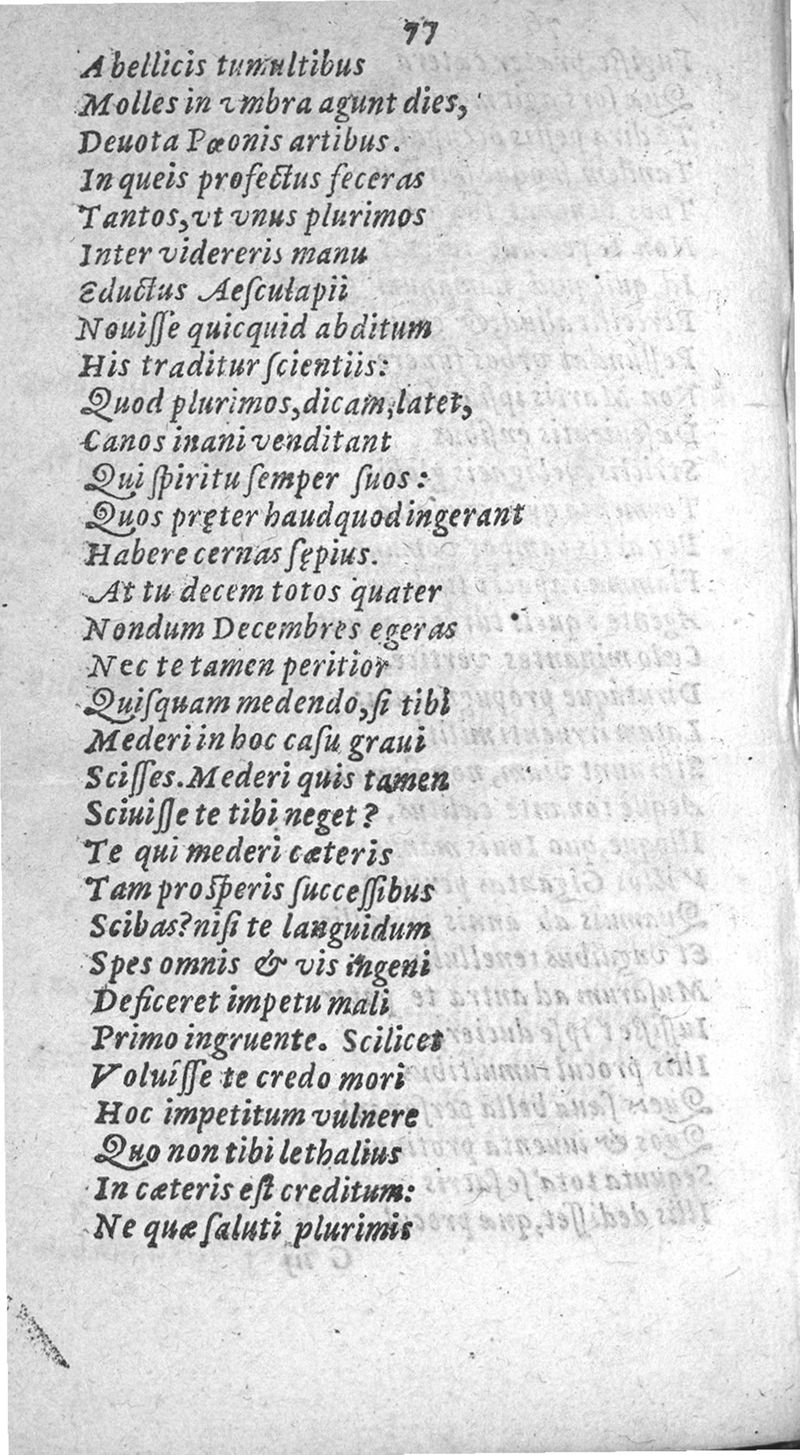 77
A bellicis tumultibus
Molles in vmbra agunt dies,
Deuota Pæonis artibus.
In queis profectus feceras
Tantos, vt vnus plurimos
Inter videreris manu
Eductus Aeſculapii
Nouiſſe quicquid abditum
His traditur ſcientiis:
Quod plurimos, dicam, latet,
Canos inani venditant
Qui ſpiritu ſemper ſuos:
Quos pręter haud quod ingerant
Habere cernas ſępius.
At tu decem totos quater
Nondum Decembres egeras
Nec te tamen peritior
Quiſquam medendo, ſi tibi
Mederi in hoc caſu graui
Sciſſes. Mederi quis tamen
Sciuiſſe te tibi neget?
Te qui mederi cæteris
Tam proſperis ſucceſſibus
Scibas? niſi te languidum
Spes omnis & vis ingeni
Deficeret impetu mali
Primo ingruente. Scilicet
Voluiſſe te credo mori
Hoc impetitum vulnere
Quo non tibi lethalius
In cæteris eſt creditum:
Ne quæ ſaluti plurimis